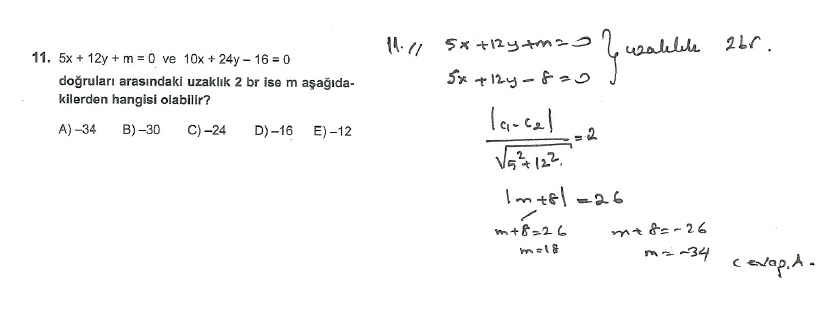 11. 5x + 12y + m = 0 ve 10x + 24y – 16 = 0
doğruları arasındaki uzaklık 2 br ise m aşağıda-
kilerden hangisi olabilir?
A) –34 B) –30 C) –24 D) –16 E) –12
11.// 5x + 12y + m = 0 } uzaklık 2br.
5x + 12y – 8 = 0
|c₁ - c₂| / √5² + 12² = 2
|m + 8| = 26
m + 8 = 26 m + 8 = -26
m = 18 m = -34
cevap. A.